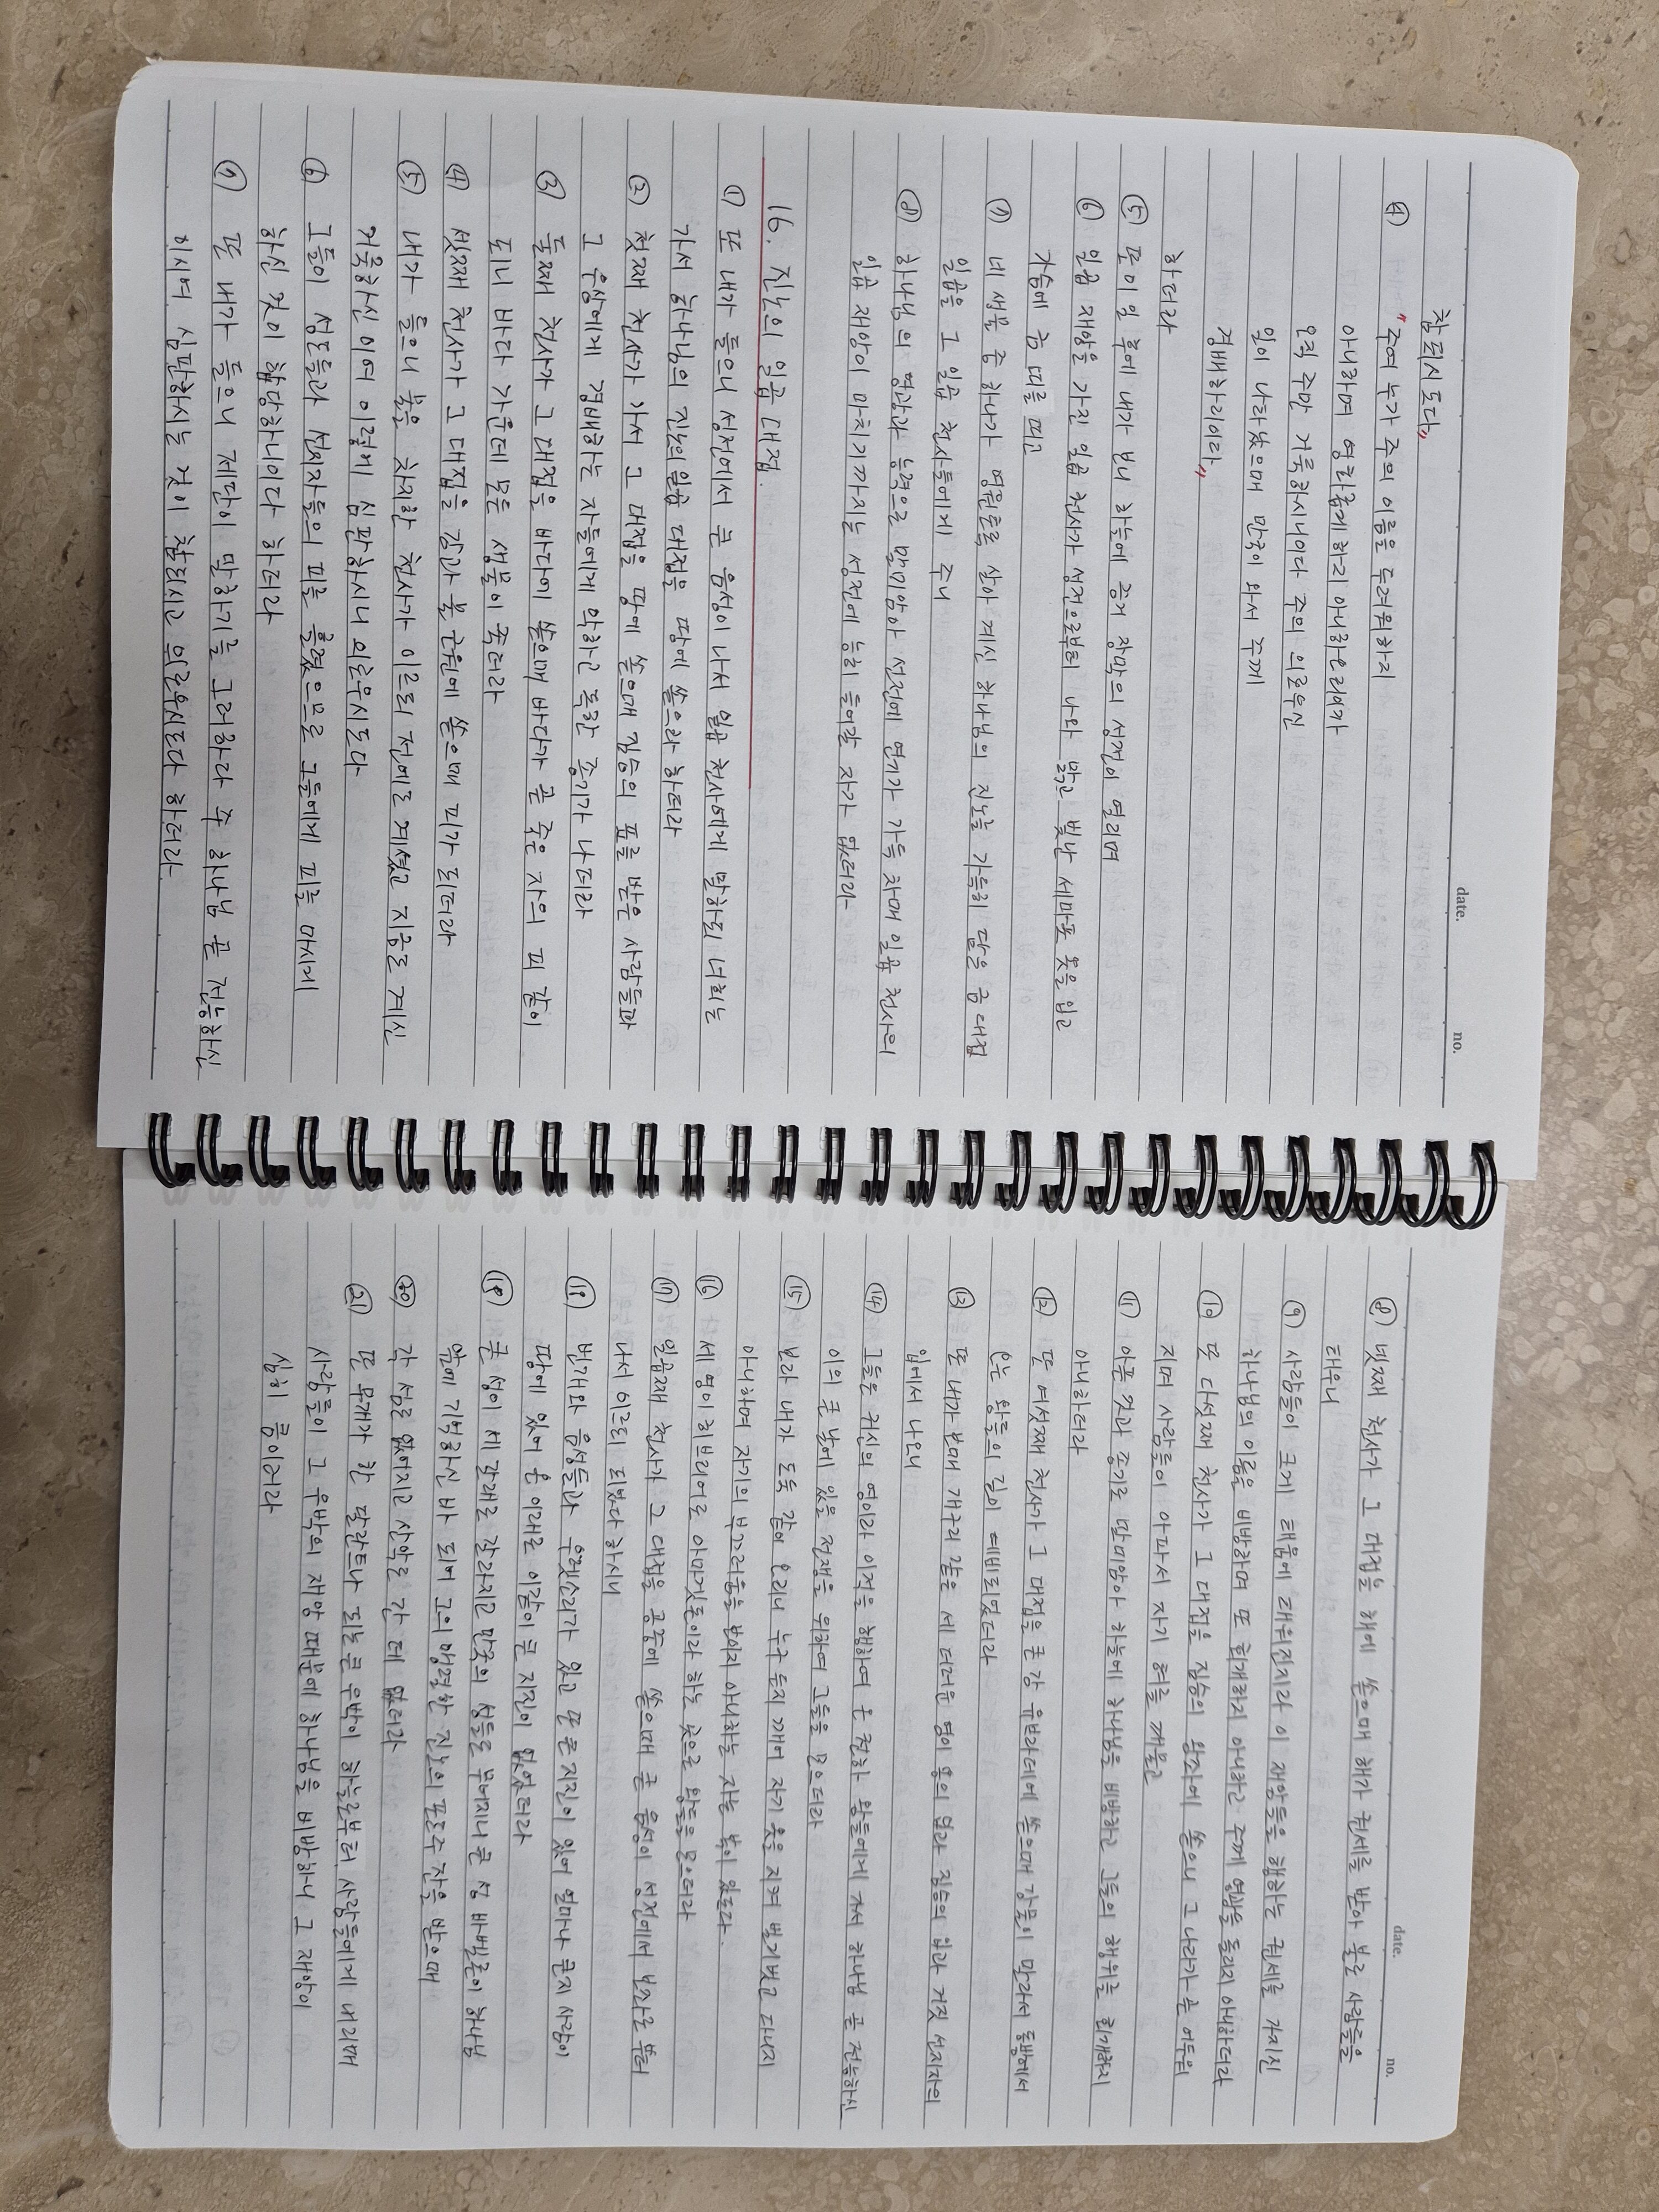 date.
no.
참되시도다"
④ "주여 누가 주의 이름을 두려워하지
아니하며 영화롭게 하지 아니하오리이까
오직 주만 거룩하시니이다 주의 의로우신
일이 나타났으매 만국이 와서 주께
경배하리이다"
하더라
⑤ 또 이 일 후에 내가 보니 하늘에 증거 장막의 성전이 열리며
⑥ 일곱 재앙을 가진 일곱 천사가 성전으로부터 나와 맑고 빛난 세마포 옷을 입고
가슴에 금 띠를 띠고
⑦ 네 생물 중 하나가 영원토록 살아 계신 하나님의 진노를 가득히 담은 금 대접
일곱을 그 일곱 천사들에게 주니
⑧ 하나님의 영광과 능력으로 말미암아 성전에 연기가 가득 차매 일곱 천사의
일곱 재앙이 마치기까지는 성전에 능히 들어갈 자가 없더라
16. 진노의 일곱 대접.
① 또 내가 들으니 성전에서 큰 음성이 나서 일곱 천사에게 말하되 너희는
가서 하나님의 진노의 일곱 대접을 땅에 쏟으라 하더라
② 첫째 천사가 가서 그 대접을 땅에 쏟으매 짐승의 표를 받은 사람들과
그 우상에게 경배하는 자들에게 악하고 독한 종기가 나더라
③ 둘째 천사가 그 대접을 바다에 쏟으매 바다가 곧 죽은 자의 피 같이
되니 바다 가운데 모든 생물이 죽더라
④ 셋째 천사가 그 대접을 강과 물 근원에 쏟으매 피가 되더라
⑤ 내가 들으니 물을 차지한 천사가 이르되 전에도 계셨고 지금도 계신
거룩하신 이여 이렇게 심판하시니 의로우시도다
⑥ 그들이 성도들과 선지자들의 피를 흘렸으므로 그들에게 피를 마시게
하신 것이 합당하니이다 하더라
⑦ 또 내가 들으니 제단이 말하기를 그러하다 주 하나님 곧 전능하신
이시여 심판하시는 것이 참되시고 의로우시도다 하더라
date.
no.
⑧ 넷째 천사가 그 대접을 해에 쏟으매 해가 권세를 받아 불로 사람들을
태우니
⑨ 사람들이 크게 태움에 태워진지라 이 재앙들을 행하는 권세를 가지신
하나님의 이름을 비방하며 또 회개하지 아니하고 주께 영광을 돌리지 아니하더라
⑩ 또 다섯째 천사가 그 대접을 짐승의 왕좌에 쏟으니 그 나라가 곧 어두워
지며 사람들이 아파서 자기 혀를 깨물고
⑪ 아픈 것과 종기로 말미암아 하늘에 하나님을 비방하고 그들의 행위를 회개하지
아니하더라
⑫ 또 여섯째 천사가 그 대접을 큰 강 유브라데에 쏟으매 강물이 말라서 동방에서
오는 왕들의 길이 예비되었더라
⑬ 또 내가 보매 개구리 같은 세 더러운 영이 용의 입과 짐승의 입과 거짓 선지자의
입에서 나오니
⑭ 그들은 귀신의 영이라 이적을 행하여 온 천하 왕들에게 가서 하나님 곧 전능하신
이의 큰 날에 있을 전쟁을 위하여 그들을 모으더라
⑮ 보라 내가 도둑 같이 오리니 누구든지 깨어 자기 옷을 지켜 벌거벗고 다니지
아니하며 자기의 부끄러움을 보이지 아니하는 자는 복이 있도다.
⑯ 세 영이 히브리어로 아마겟돈이라 하는 곳으로 왕들을 모으더라
⑰ 일곱째 천사가 그 대접을 공중에 쏟으매 큰 음성이 성전에서 보좌로부터
나서 이르되 되었다 하시니
⑱ 번개와 음성들과 우렛소리가 있고 또 큰 지진이 있어 얼마나 큰지 사람이
땅에 있어 온 이래로 이같이 큰 지진이 없었더라
⑲ 큰 성이 세 갈래로 갈라지고 만국의 성들도 무너지니 큰 성 바벨론이 하나님
앞에 기억하신 바 되어 그의 맹렬한 진노의 포도주 잔을 받으매
⑳ 각 섬도 없어지고 산악도 간 데 없더라
㉑ 또 무게가 한 달란트나 되는 큰 우박이 하늘로부터 사람들에게 내리매
사람들이 그 우박의 재앙 때문에 하나님을 비방하니 그 재앙이
심히 큼이러라